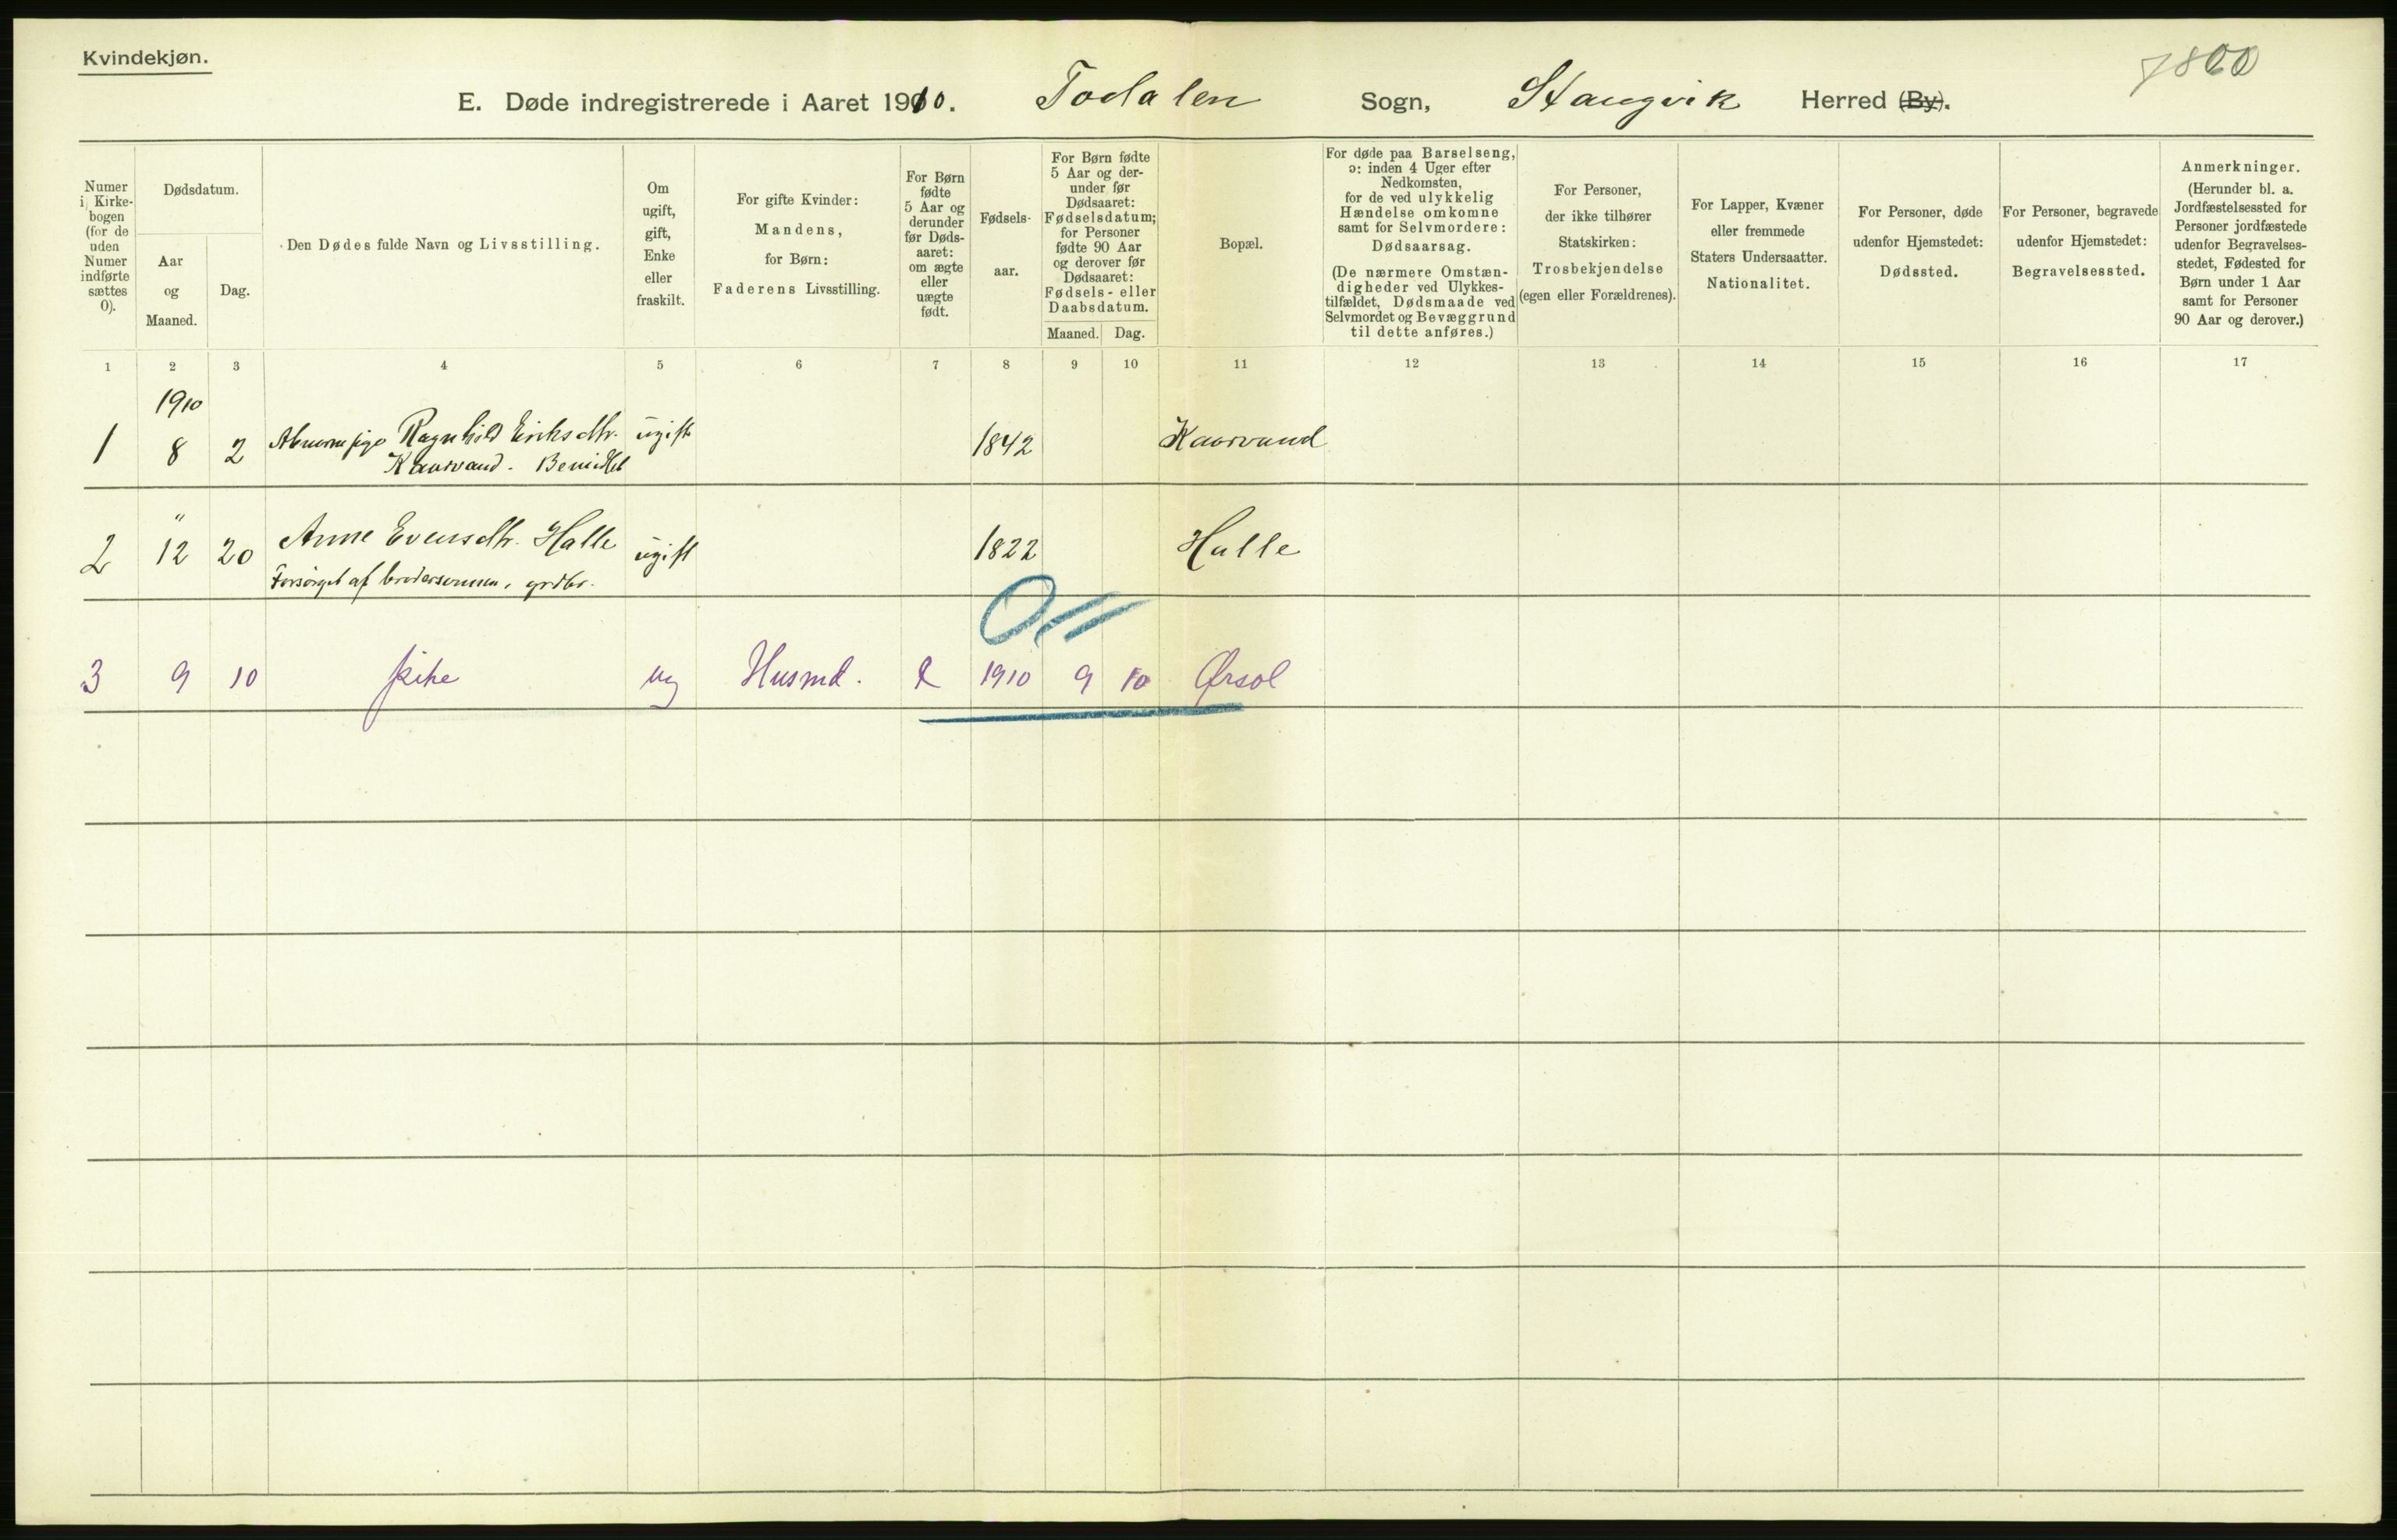 Kvindekjøn.
7800
E. Døde indregistrerede i Aaret 1910. Todalen Sogn, Stangvik Herred (By).
Numer
i Kirke-
bogen
(for de
uden
Numer
indførte
sættes
0).
Dødsdatum.
Aar
og
Maaned.
Dag.
Den Dødes fulde Navn og Livsstilling.
Om
ugift,
gift,
Enke
eller
fraskilt.
For gifte Kvinder:
Mandens,
for Børn:
Faderens Livsstilling.
For Børn
fødte
5 Aar og
derunder
før Døds-
aaret:
om ægte
eller
uægte
født.
Fødsels-
aar.
For Børn fødte
5 Aar og der-
under før
Dødsaaret:
Fødselsdatum;
for Personer
fødte 90 Aar
og derover før
Dødsaaret:
Fødsels- eller
Daabsdatum.
Maaned. Dag.
Bopæl.
For døde paa Barselseng,
ɔ: inden 4 Uger efter
Nedkomsten,
for de ved ulykkelig
Hændelse omkomne
samt for Selvmordere:
Dødsaarsag.
(De nærmere Omstæn-
digheder ved Ulykkes-
tilfældet, Dødsmaade ved
Selvmordet og Bevæggrund
til dette anføres.)
For Personer,
der ikke tilhører
Statskirken:
Trosbekjendelse
(egen eller Forældrenes).
For Lapper, Kvæner
eller fremmede
Staters Undersaatter.
Nationalitet.
For Personer, døde
udenfor Hjemstedet:
Dødssted.
For Personer, begravede
udenfor Hjemstedet:
Begravelsessted.
Anmerkninger.
(Herunder bl. a.
Jordfæstelsessted for
Personer jordfæstede
udenfor Begravelses-
stedet, Fødested for
Børn under 1 Aar
samt for Personer
90 Aar og derover.)
1 2 3 4 5 6 7 8 9 10 11 12 13 14 15 16 17
1910
1 8 2 Ragnhild Eriksdtr. ugift 1842 Kaarvand
Kaarvand. Bemidlet
"
2 12 20 Anne Evensdtr. Halle ugift 1822 Halle
Forsørget af brodersønnen, grdbr.
3 9 10 pike ug Husmd. 1910 9 10 Ørsol